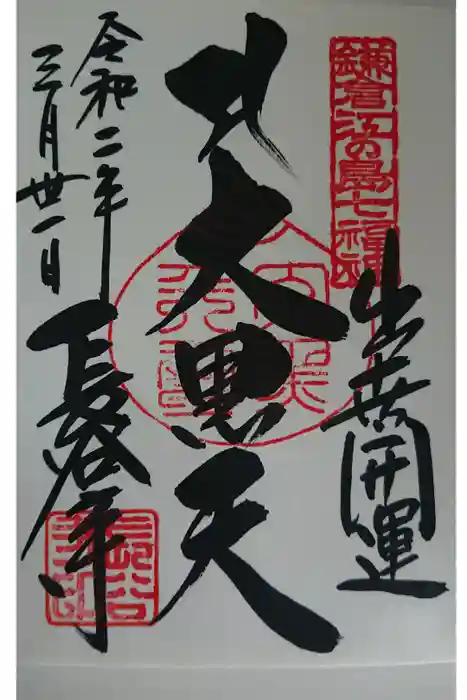 鎌倉江の島七福神
出世開運
大黒天
令和二年
三月卅一日
長谷寺